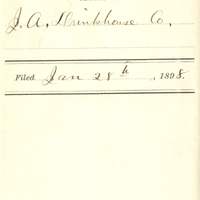 J. A. Drinkhouse Co.
Filed Jan 28th, 1898.